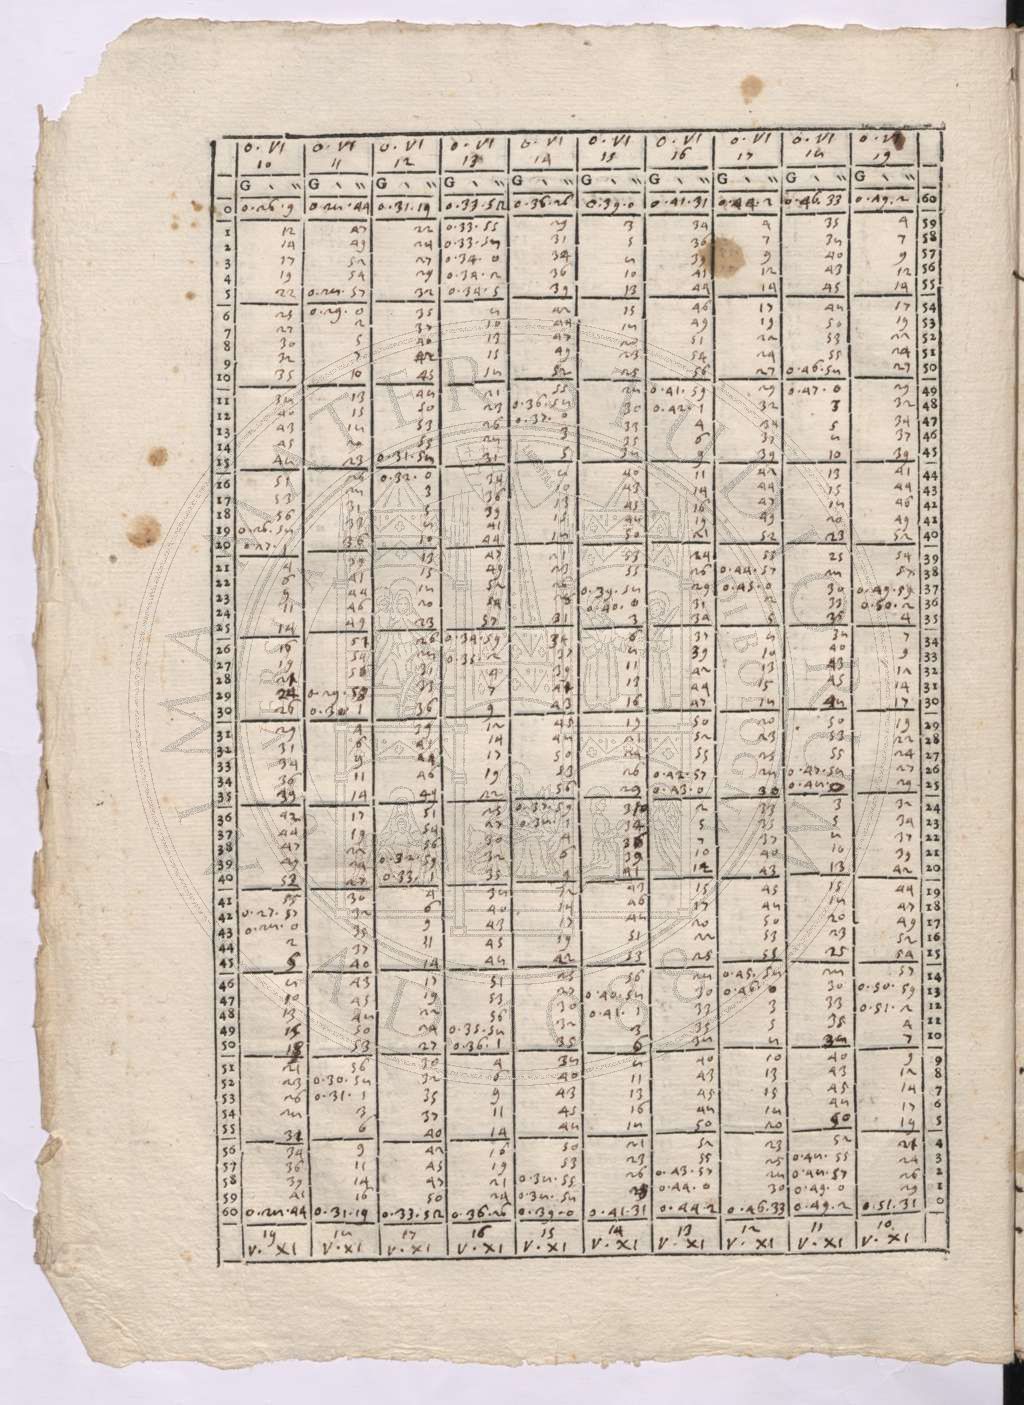 0. VI 0. VI 0. VI 0. VI 0. VI 0. VI 0. VI 0. VI 0. VI 0. VI
10 11 12 13 14 15 16 17 18 19
G ' " G ' " G ' " G ' " G ' " G ' " G ' " G ' " G ' " G ' "
0 0.26.9 0.28.44 0.31.19 0.33.52 0.36.26 0.39.0 0.41.31 0.44.2 0.46.33 0.49.2 60
1 12 47 22 0.33.55 29 3 34 4 35 4 59
2 14 49 24 0.33.58 31 5 36 7 38 7 58
3 17 52 27 0.34.0 34 8 39 9 40 9 57
4 19 54 29 0.34.2 36 10 41 12 43 12 56
5 22 0.28.57 32 0.34.5 39 13 44 14 45 14 55
6 25 0.29.0 35 8 42 15 46 17 48 17 54
7 27 2 37 10 44 18 49 19 50 19 53
8 30 5 40 13 47 20 51 22 53 22 52
9 32 7 42 15 49 23 54 24 55 24 51
10 35 10 45 18 52 25 56 27 0.46.58 27 50
11 38 13 48 21 55 28 0.41.59 29 0.47.0 29 49
12 40 15 50 23 0.36.58 30 0.42.1 32 3 32 48
13 43 18 53 26 0.37.0 33 4 34 5 34 47
14 45 20 55 28 3 35 6 37 8 37 46
15 48 23 0.31.58 31 5 38 9 39 10 39 45
16 51 26 0.32.0 34 8 40 11 42 13 41 44
17 53 28 3 36 10 43 14 44 15 44 43
18 56 31 5 39 13 45 16 47 18 46 42
19 0.26.58 33 8 41 15 48 19 49 20 49 41
20 0.27.1 36 10 44 18 50 21 52 23 52 40
21 4 39 13 47 21 53 24 55 25 54 39
22 6 41 15 49 23 55 26 0.44.57 28 57 38
23 9 44 18 52 26 0.39.58 29 0.45.0 30 0.49.59 37
24 11 46 20 54 28 0.40.0 31 2 33 0.50.2 36
25 14 49 23 57 31 3 34 5 35 4 35
26 16 51 26 0.34.59 34 6 37 8 38 7 34
27 19 54 28 0.35.2 37 8 39 10 40 9 33
28 21 56 31 4 39 11 42 13 43 12 32
29 24 0.29.58 33 7 41 13 44 15 45 14 31
30 26 0.30.1 36 9 43 16 47 18 48 17 30
31 29 4 39 12 45 19 50 20 50 19 29
32 31 6 41 14 48 21 52 23 53 22 28
33 34 9 44 17 50 24 55 25 55 24 27
34 36 11 46 19 53 26 0.42.57 28 0.47.58 27 26
35 39 14 49 22 56 29 0.43.0 30 0.48.0 29 25
36 42 17 51 25 0.37.59 2 33 3 32 24
37 44 19 54 27 0.38.1 34 5 35 5 34 23
38 47 22 56 30 4 36 7 37 8 37 22
39 49 24 0.32.59 32 6 39 10 40 10 39 21
40 52 27 0.33.1 35 9 41 12 43 13 42 20
41 55 30 4 38 12 43 15 45 15 44 19
42 0.27.57 32 6 40 14 46 17 48 18 47 18
43 0.28.0 35 9 43 17 48 20 50 20 49 17
44 2 37 11 45 19 51 22 53 23 52 16
45 5 40 14 48 22 53 25 55 25 54 15
46 8 43 17 51 25 56 28 0.45.58 28 57 14
47 10 45 19 53 27 0.40.58 30 0.46.0 30 0.50.59 13
48 13 48 22 56 30 0.41.1 33 3 33 0.51.2 12
49 15 50 24 0.35.58 32 3 35 5 35 4 11
50 18 53 27 0.36.1 35 6 38 8 38 7 10
51 21 56 30 4 38 8 40 10 40 9 9
52 23 0.30.58 32 6 40 11 43 13 43 12 8
53 26 0.31.1 35 9 43 13 45 15 45 14 7
54 28 3 37 11 45 16 48 18 48 17 6
55 31 6 40 14 48 18 50 20 50 19 5
56 34 9 42 16 50 21 52 23 52 21 4
57 36 11 45 19 53 23 55 25 0.48.55 24 3
58 39 14 47 21 0.38.55 26 0.43.57 28 0.48.57 26 2
59 41 16 50 24 0.38.58 28 0.44.0 30 0.49.0 29 1
60 0.28.44 0.31.19 0.33.52 0.36.26 0.39.0 0.41.31 0.44.2 0.46.33 0.49.2 0.51.31 0
19 18 17 16 15 14 13 12 11 10
V. XI V. XI V. XI V. XI V. XI V. XI V. XI V. XI V. XI V. XI